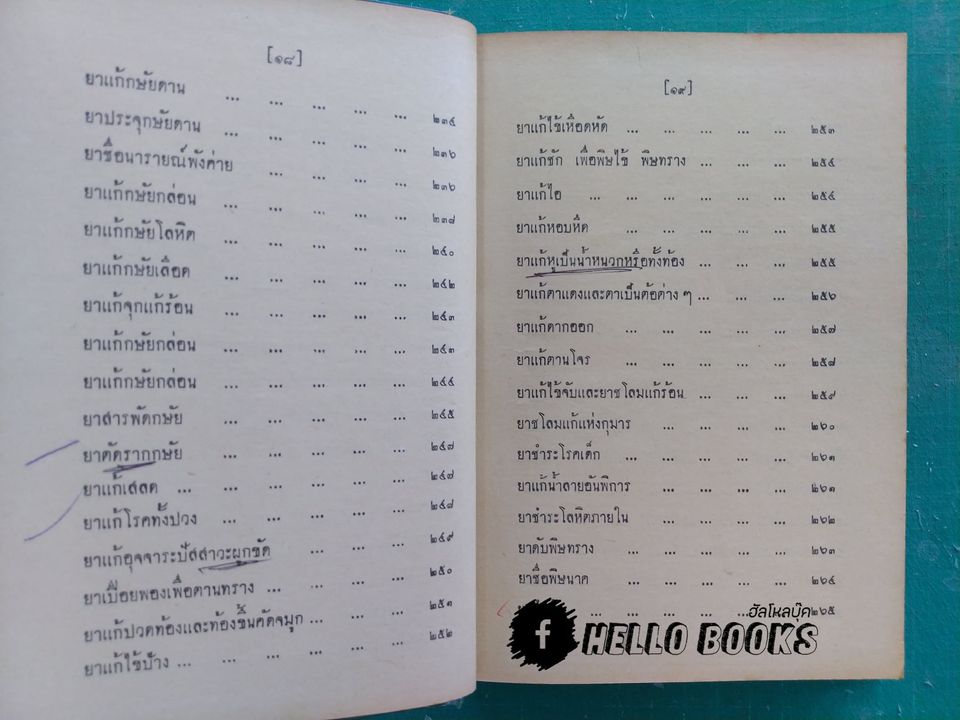 [๑๘]
ยาแก้กษัยดาน ... ... ... ... ... ๒๓๔
ยาประจุกษัยดาน ... ... ... ... ... ๒๓๖
ยาชื่อนารายณ์พังค่าย ... ... ... ... ๒๓๖
ยาแก้กษัยกล่อน ... ... ... ... ... ๒๓๗
ยาแก้กษัยโลหิต ... ... ... ... ... ๒๔๐
ยาแก้กษัยเลือด ... ... ... ... ... ๒๔๒
ยาแก้จุกแก้ร้อน ... ... ... ... ... ๒๔๓
ยาแก้กษัยกล่อน ... ... ... ... ... ๒๔๓
ยาแก้กษัยกล่อน ... ... ... ... ... ๒๔๔
ยาสารพัดกษัย ... ... ... ... ... ๒๔๕
ยาตัดรากกษัย ... ... ... ... ... ๒๔๗
ยาแก้เสลด ... ... ... ... ... ... ๒๔๗
ยาแก้โรคทั้งปวง ... ... ... ... ... ๒๔๘
ยาแก้อุจจาระปัสสาวะผูกขัด ... ... ... ๒๔๙
ยาเปื่อยพองเพื่อตานทราง ... ... ... ... ๒๕๐
ยาแก้ปวดท้องและท้องขึ้นคัดจมูก ... ... ... ๒๕๑
ยาแก้ไข้ป้าง ... ... ... ... ... ... ๒๕๒
[๑๙]
ยาแก้ไข้เหือดหัด ... ... ... ... ... ๒๕๓
ยาแก้ชัก เพื่อพิษไข้ พิษทราง ... ... ... ๒๕๔
ยาแก้ไอ ... ... ... ... ... ... ๒๕๔
ยาแก้หอบหืด ... ... ... ... ... ๒๕๕
ยาแก้หูเป็นน้ำหนวกหรือทั้งท้อง ... ... ... ๒๕๕
ยาแก้ตาแดงและตาเป็นต้อต่าง ๆ ... ... ... ๒๕๖
ยาแก้ดากออก ... ... ... ... ... ๒๕๗
ยาแก้ตานโจร ... ... ... ... ... ๒๕๘
ยาแก้ไข้จับและยาชโลมแก้ร้อน ... ... ... ๒๕๙
ยาชโลมแก้แห่งกุมาร ... ... ... ... ๒๖๐
ยาชำระโรคเด็ก ... ... ... ... ... ๒๖๑
ยาแก้น้ำลายอันพิการ ... ... ... ... ๒๖๑
ยาชำระโลหิตภายใน ... ... ... ... ๒๖๒
ยาดับพิษทราง ... ... ... ... ... ๒๖๓
ยาชื่อพิษนาค ... ... ... ... ... ๒๖๔
... ... ... ... ๒๖๕
ฮัลโหลบุ๊ค
f HELLO BOOKS